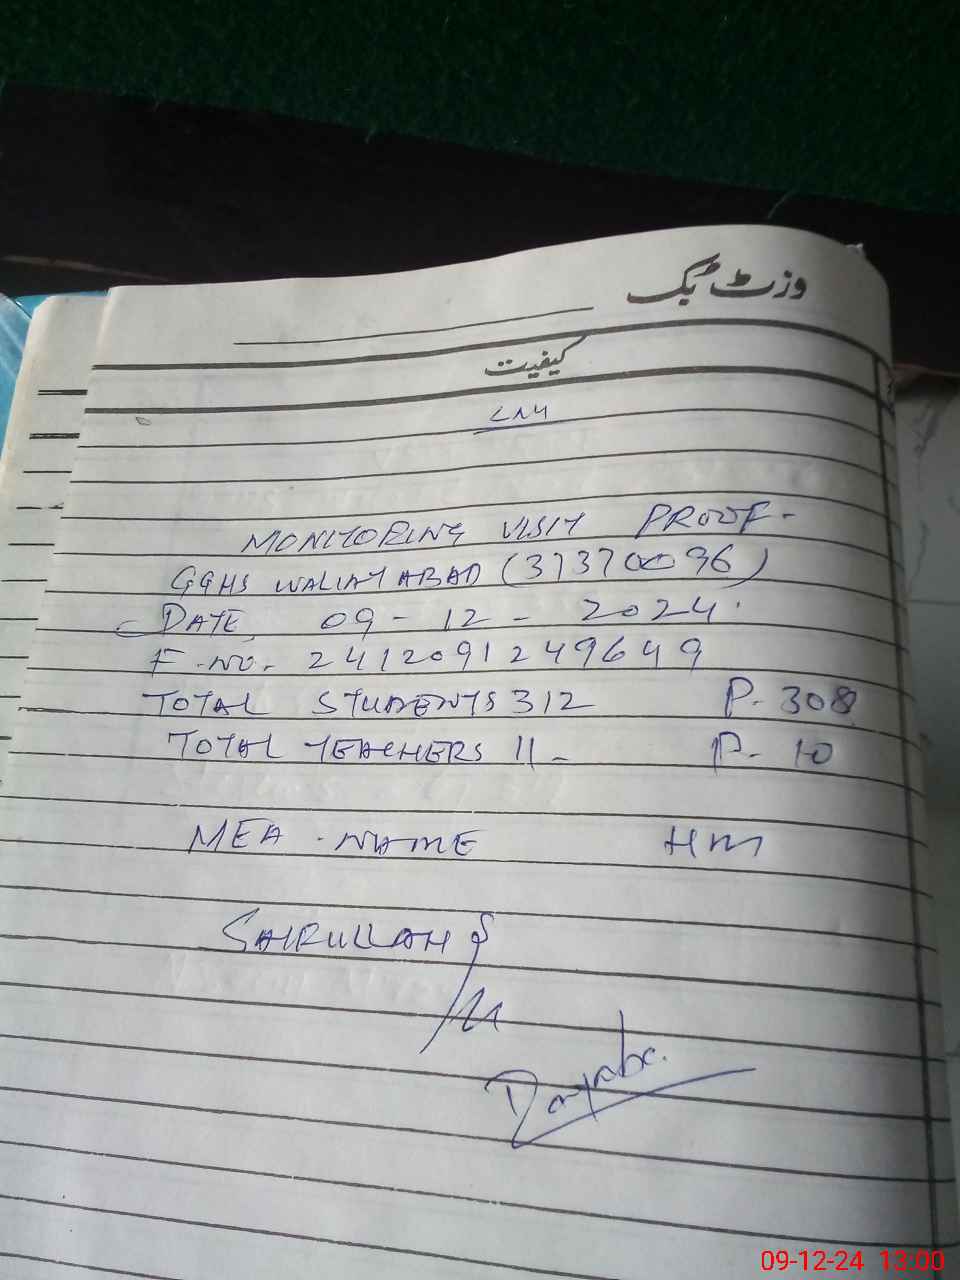 وزٹ بک
کیفیت
MONITORING VISIT PROOF -
GGHS WALIAYABAD (31370096)
DATE 09 - 12 - 2024.
F. NO. 2412091249649
TOTAL STUDENTS 312 P- 308
TOTAL TEACHERS 11 - P- 10
MEA - NAME HM
09-12-24 13:00